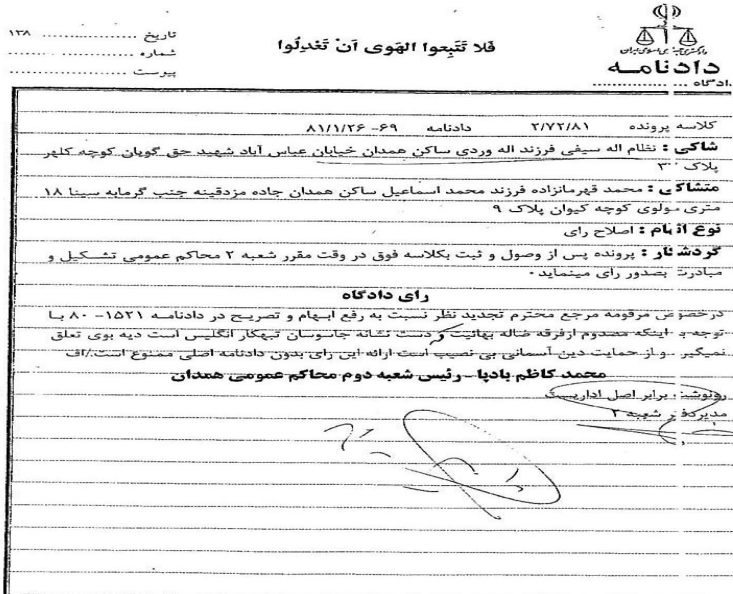 تاریخ .................. ۱۳۸
شماره ..................
پیوست ..................
فَلا تَتَّبِعوا الهَوی اَنْ تَعْدِلُوا
دادنامـه
دادگاه ..................
کلاسه پرونده ۲/۷۲/۸۱ دادنامه ۶۹- ۸۱/۱/۲۶
شاکی : نظام اله سیفی فرزند اله وردی ساکن همدان خیابان عباس آباد شهید حق گویان کوچه کلهر
پلاک ۳
متشاکی : محمد قهرمانزاده فرزند محمد اسماعیل ساکن همدان جاده مزدقینه جنب گرمابه سینا ۱۸
متری مولوی کوچه کیوان پلاک ۹
نوع اتهام : اصلاح رای
گردشکار : پرونده پس از وصول و ثبت بکلاسه فوق در وقت مقرر شعبه ۲ محاکم عمومی تشکیل و
مبادرت بصدور رای مینماید.
رای دادگاه
درخصوص مرقومه مرجع محترم تجدید نظر نسبت به رفع ابهام و تصریح در دادنامه ۱۵۲۱- ۸۰ با
توجه به اینکه مصدوم ازفرقه ضاله بهائیت و دست نشانه جاسوسان تبهکار انگلیس است دیه بوی تعلق
نمیگیرد و از حمایت دین آسمانی بی نصیب است ارائه این رای بدون دادنامه اصلی ممنوع است./اف
محمد کاظم بادپا - رئیس شعبه دوم محاکم عمومی همدان
رونوشت برابر اصل اداریست
مدیردفتر شعبه ۲